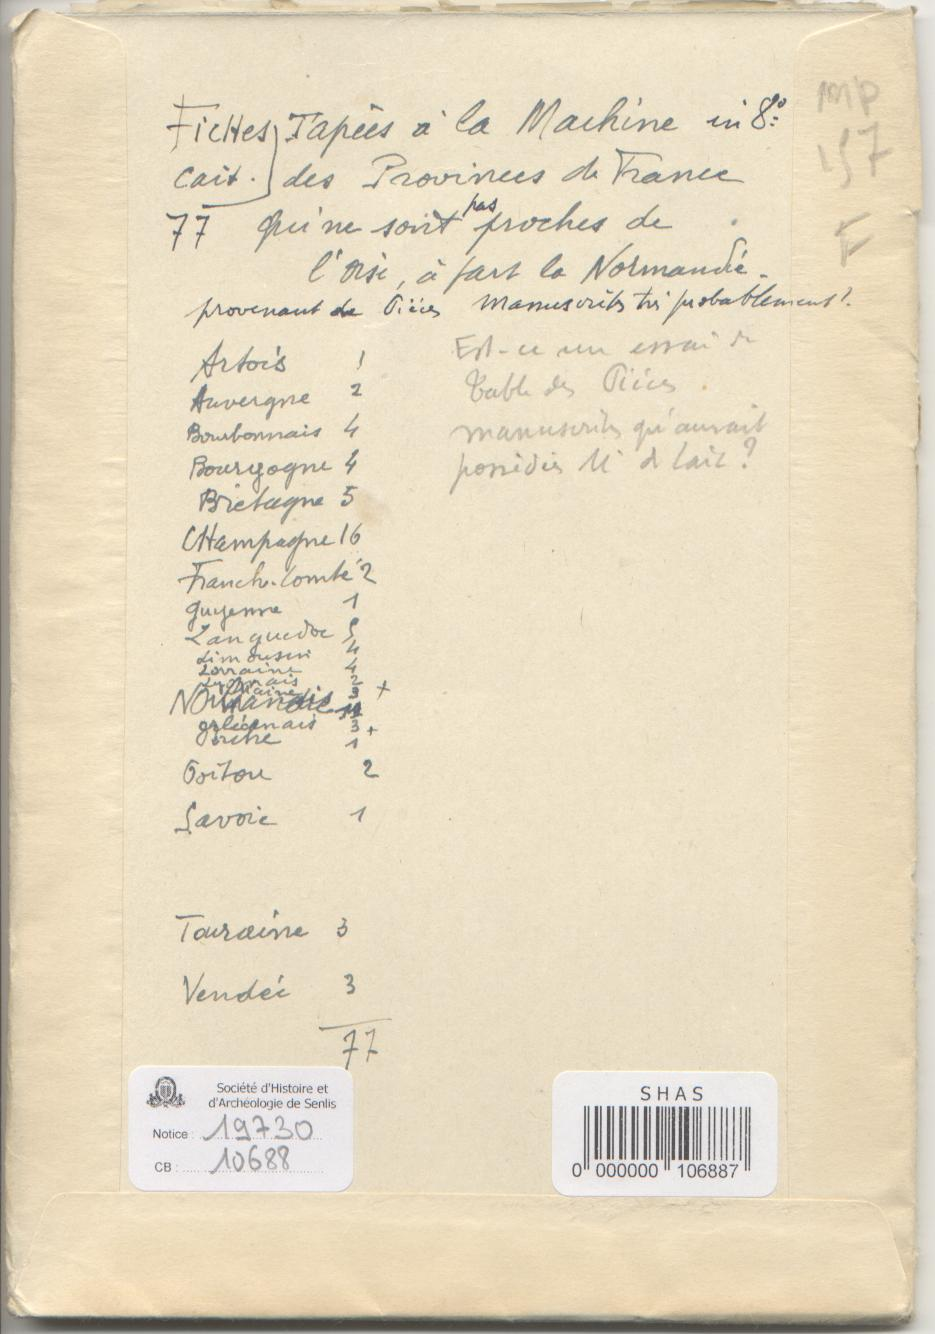 Fiches Tapées à la Machine in 8º
cait. des Provinces de France
77 qui ne sont pas proches de
l'Oise, à part la Normandie.
provenant de Pièces manuscrites très probablement?
mp
157
F
Est-ce un essai de
Table des Pièces
manuscrites qu'aurait
possédés Mr de Cait?
Artois 1
Auvergne 2
Bourbonnais 4
Bourgogne 4
Bretagne 5
Champagne 16
Franche-Comté 2
Guyenne 1
Languedoc 5
Limousin 4
Lorraine 4
Lyonnais 2
3 +
Normandie
Orléanais 3 +
Perche 1
Poitou 2
Savoie 1
Touraine 3
Vendée 3
77
Société d'Histoire et
d'Archéologie de Senlis
Notice : 19730
CB : 10688
SHAS
0 000000 106887